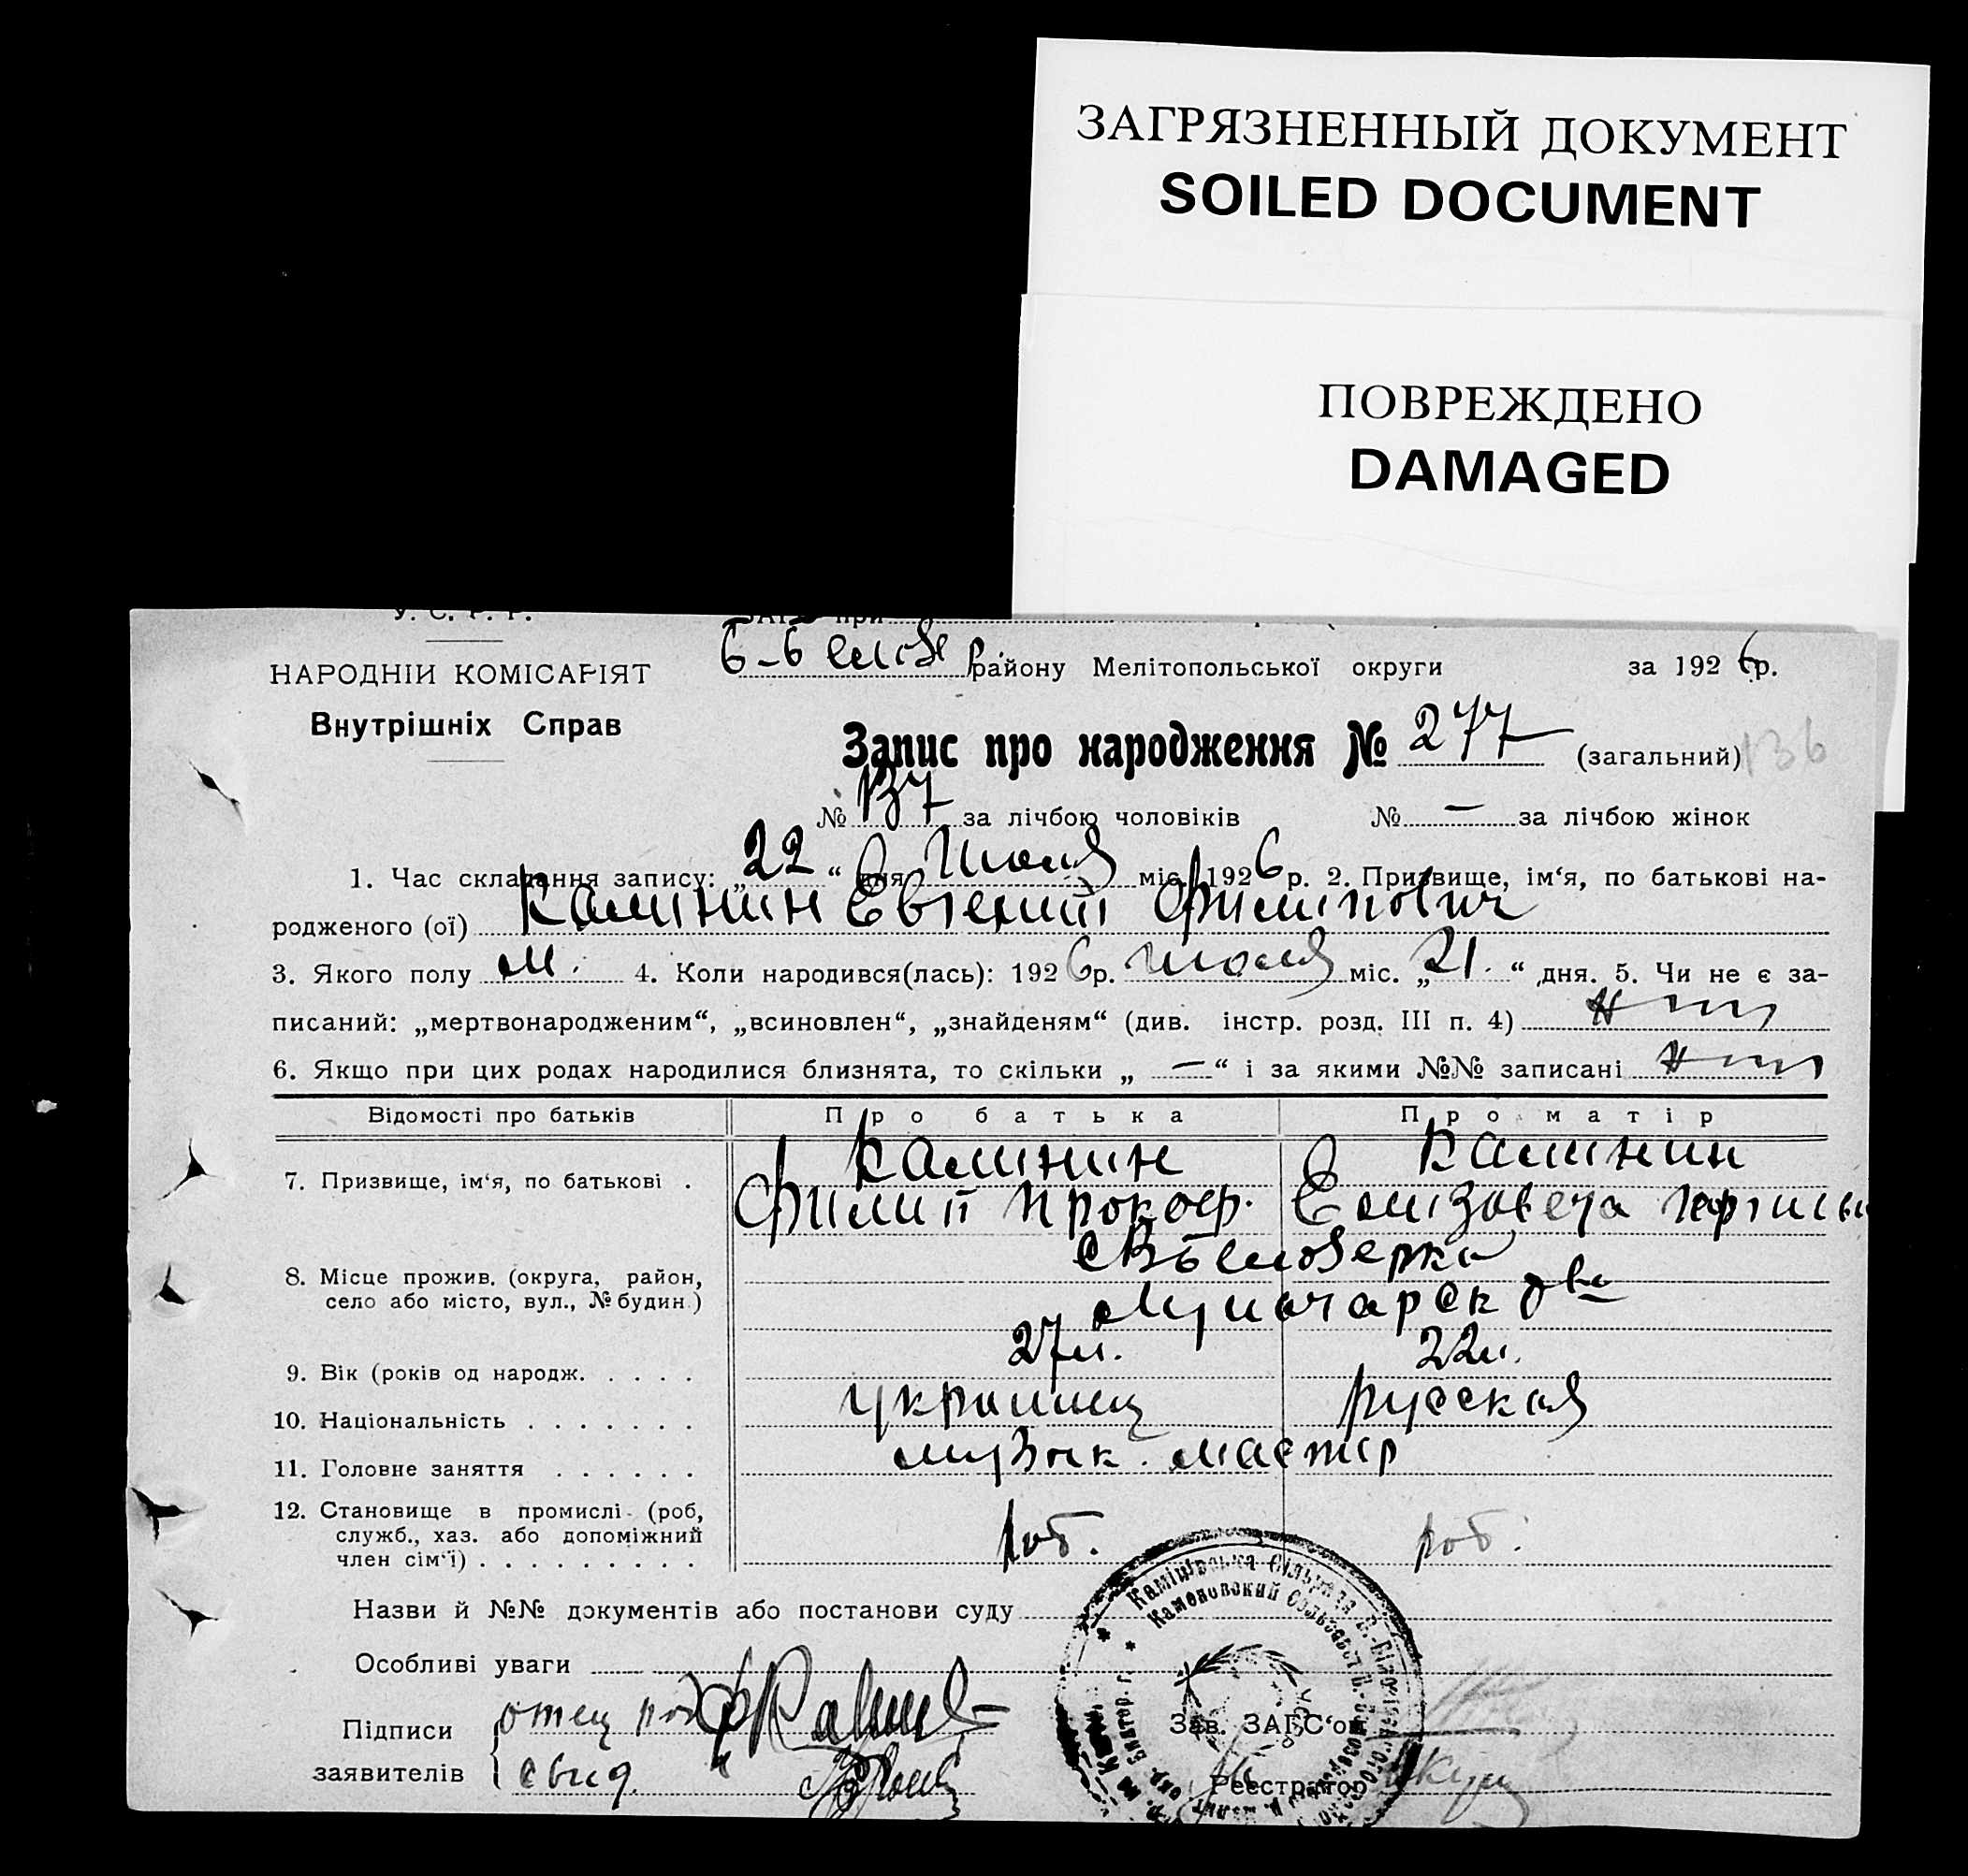 ЗАГРЯЗНЕННЫЙ ДОКУМЕНТ
SOILED DOCUMENT
ПОВРЕЖДЕНО
DAMAGED
У. С. Р. Р.
НАРОДНІЙ КОМІСАРІЯТ
Внутрішніх Справ
ЗАГС при
району Мелітопольської округи за 1926 р.
Запис про народження № 277 (загальний) 136
№ 137 за лічбою чоловіків № — за лічбою жінок
1. Час складання запису: „22“ дня Июля міс. 1926 р. 2. Призвище, ім‘я, по батькові на-
родженого (ої) Калинин Евгений Филипович
3. Якого полу м. 4. Коли народився(лась): 1926 р. Июля міс. „21.“ дня. 5. Чи не є за-
писаний: „мертвонародженим“, „всиновлен“, „знайденям“ (див. інстр. розд. III п. 4) нет
6. Якщо при цих родах народилися близнята, то скільки „—“ і за якими №№ записані нет
Відомості про батьків Про батька Про матір
Калинин Калинин
7. Призвище, ім‘я, по батькові . Филип Прокоф. Елизовета
8. Місце прожив. (округа, район,
село або місто, вул., № будин.)
9. Вік (років од народж. . . . . 27 л. 22 л.
10. Національність . . . . . . . украинец русская
11. Головне заняття . . . . . . музык. мастер
12. Становище в промислі (роб,
служб., хаз. або допоміжний
член сім‘ї) . . . . . . . . . роб. роб.
Назви й №№ документів або постанови суду
Особливі уваги
Підписи отец
заявителів свид. "
Зав. ЗАГС‘ом
Реєстратор